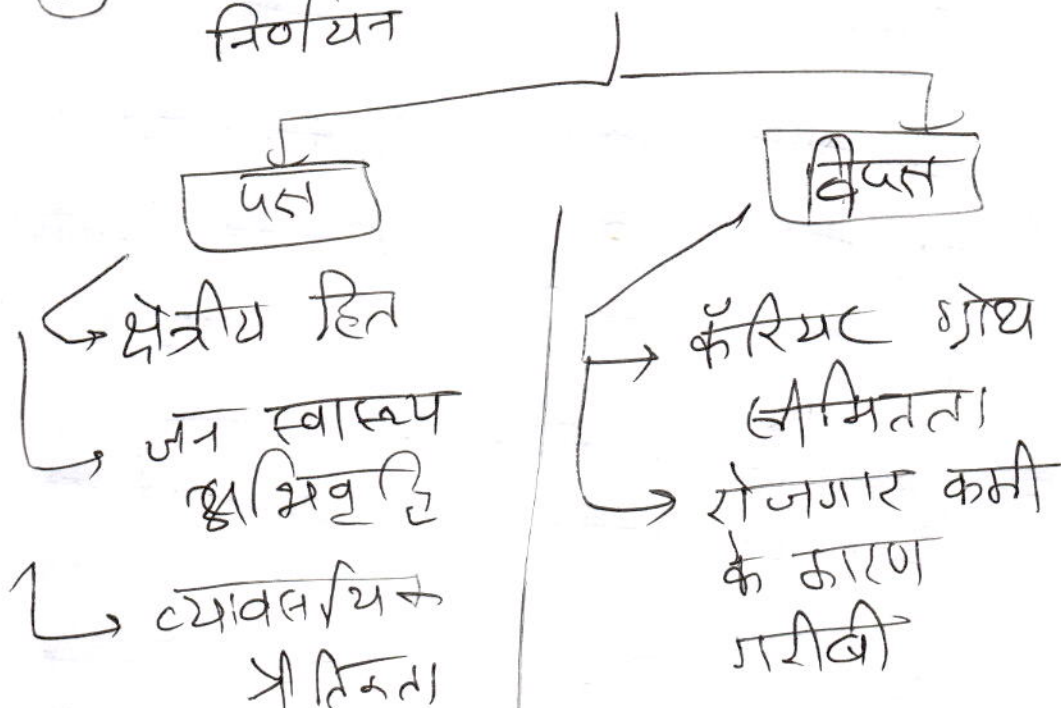 निर्णयन
पक्ष
क्षेत्रीय हित
जन स्वास्थ्य
अभिवृद्धि
व्यावसायिक
विपक्ष
कॅरियर ग्रोथ
सीमितता
रोजगार कमी
के कारण
गरीबी